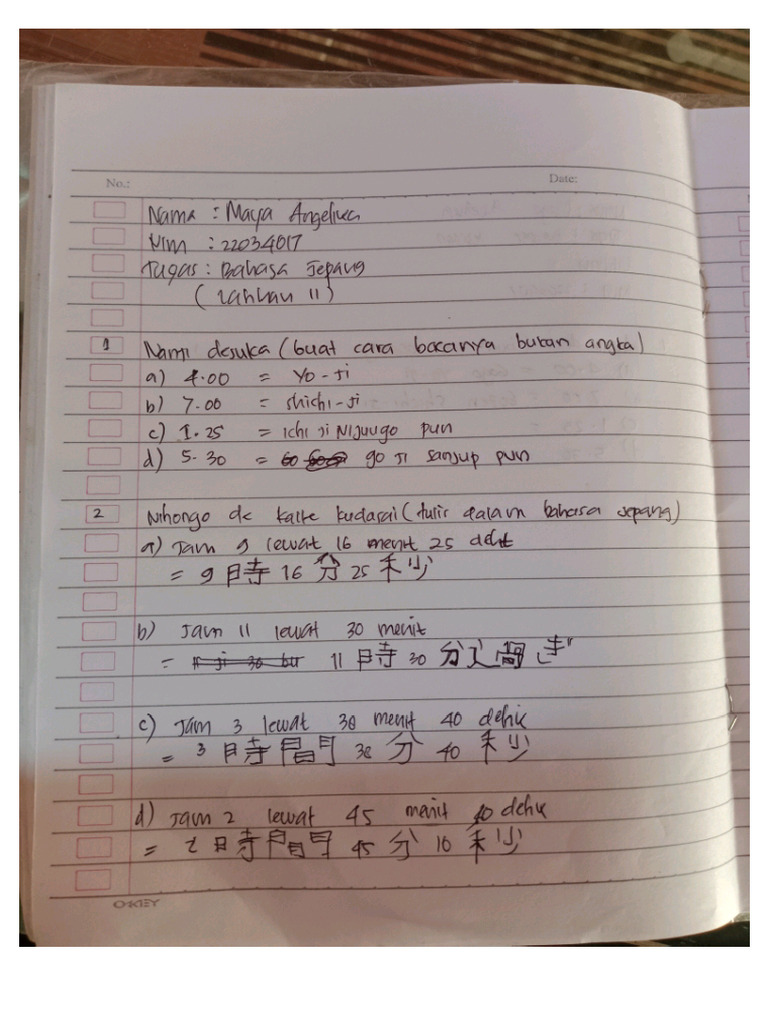 No.:
Date:
Nama : Maya Angelica
Nim : 22034017
Tugas : Bahasa Jepang
(Latihan 11)
1 Nanji desuka (buat cara bacanya bukan angka)
a) 4.00 = Yo-Ji
b) 7.00 = Shichi-Ji
c) 1.25 = Ichi Ji Nijuugo pun
d) 5.30 = go Ji sanjup pun
2 Nihongo de kaite kudasai (tulis dalam bahasa Jepang)
a) Jam 9 lewat 16 menit 25 detik
= 9 時 16 分 25 秒
b) Jam 11 lewat 30 menit
= 11 時 30 分過ぎ
c) Jam 3 lewat 38 menit 40 detik
= 3 時間 38 分 40 秒
d) Jam 2 lewat 45 menit 10 detik
= 2 時間 45 分 10 秒
OKEY